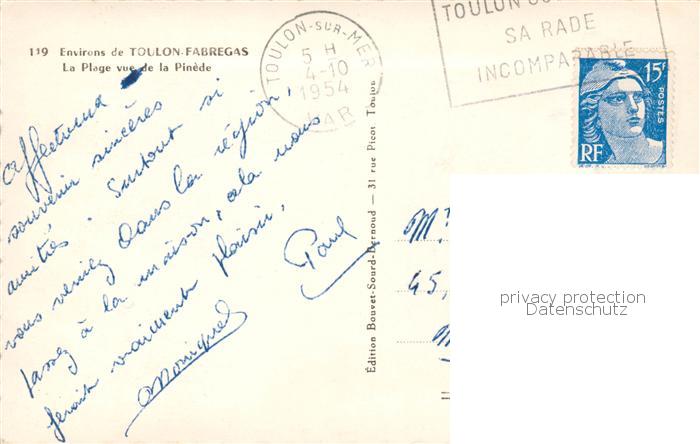 119 Environs de TOULON-FABREGAS
La Plage vue de la Pinède
TOULON-SUR-MER
5 H
4-10
1954
VAR
TOULON
SA RADE
INCOMPARABLE
15F
POSTES
RF
Affectueux
souvenir sincères
amitiés. Surtout si
vous veniez dans la région,
passez à la maison, cela nous
ferait vraiment plaisir.
Paul
Monique
Édition Bouvet-Sourd-Bernoud — 31 rue Picot Toulon
M
45,
M
privacy protection
Datenschutz